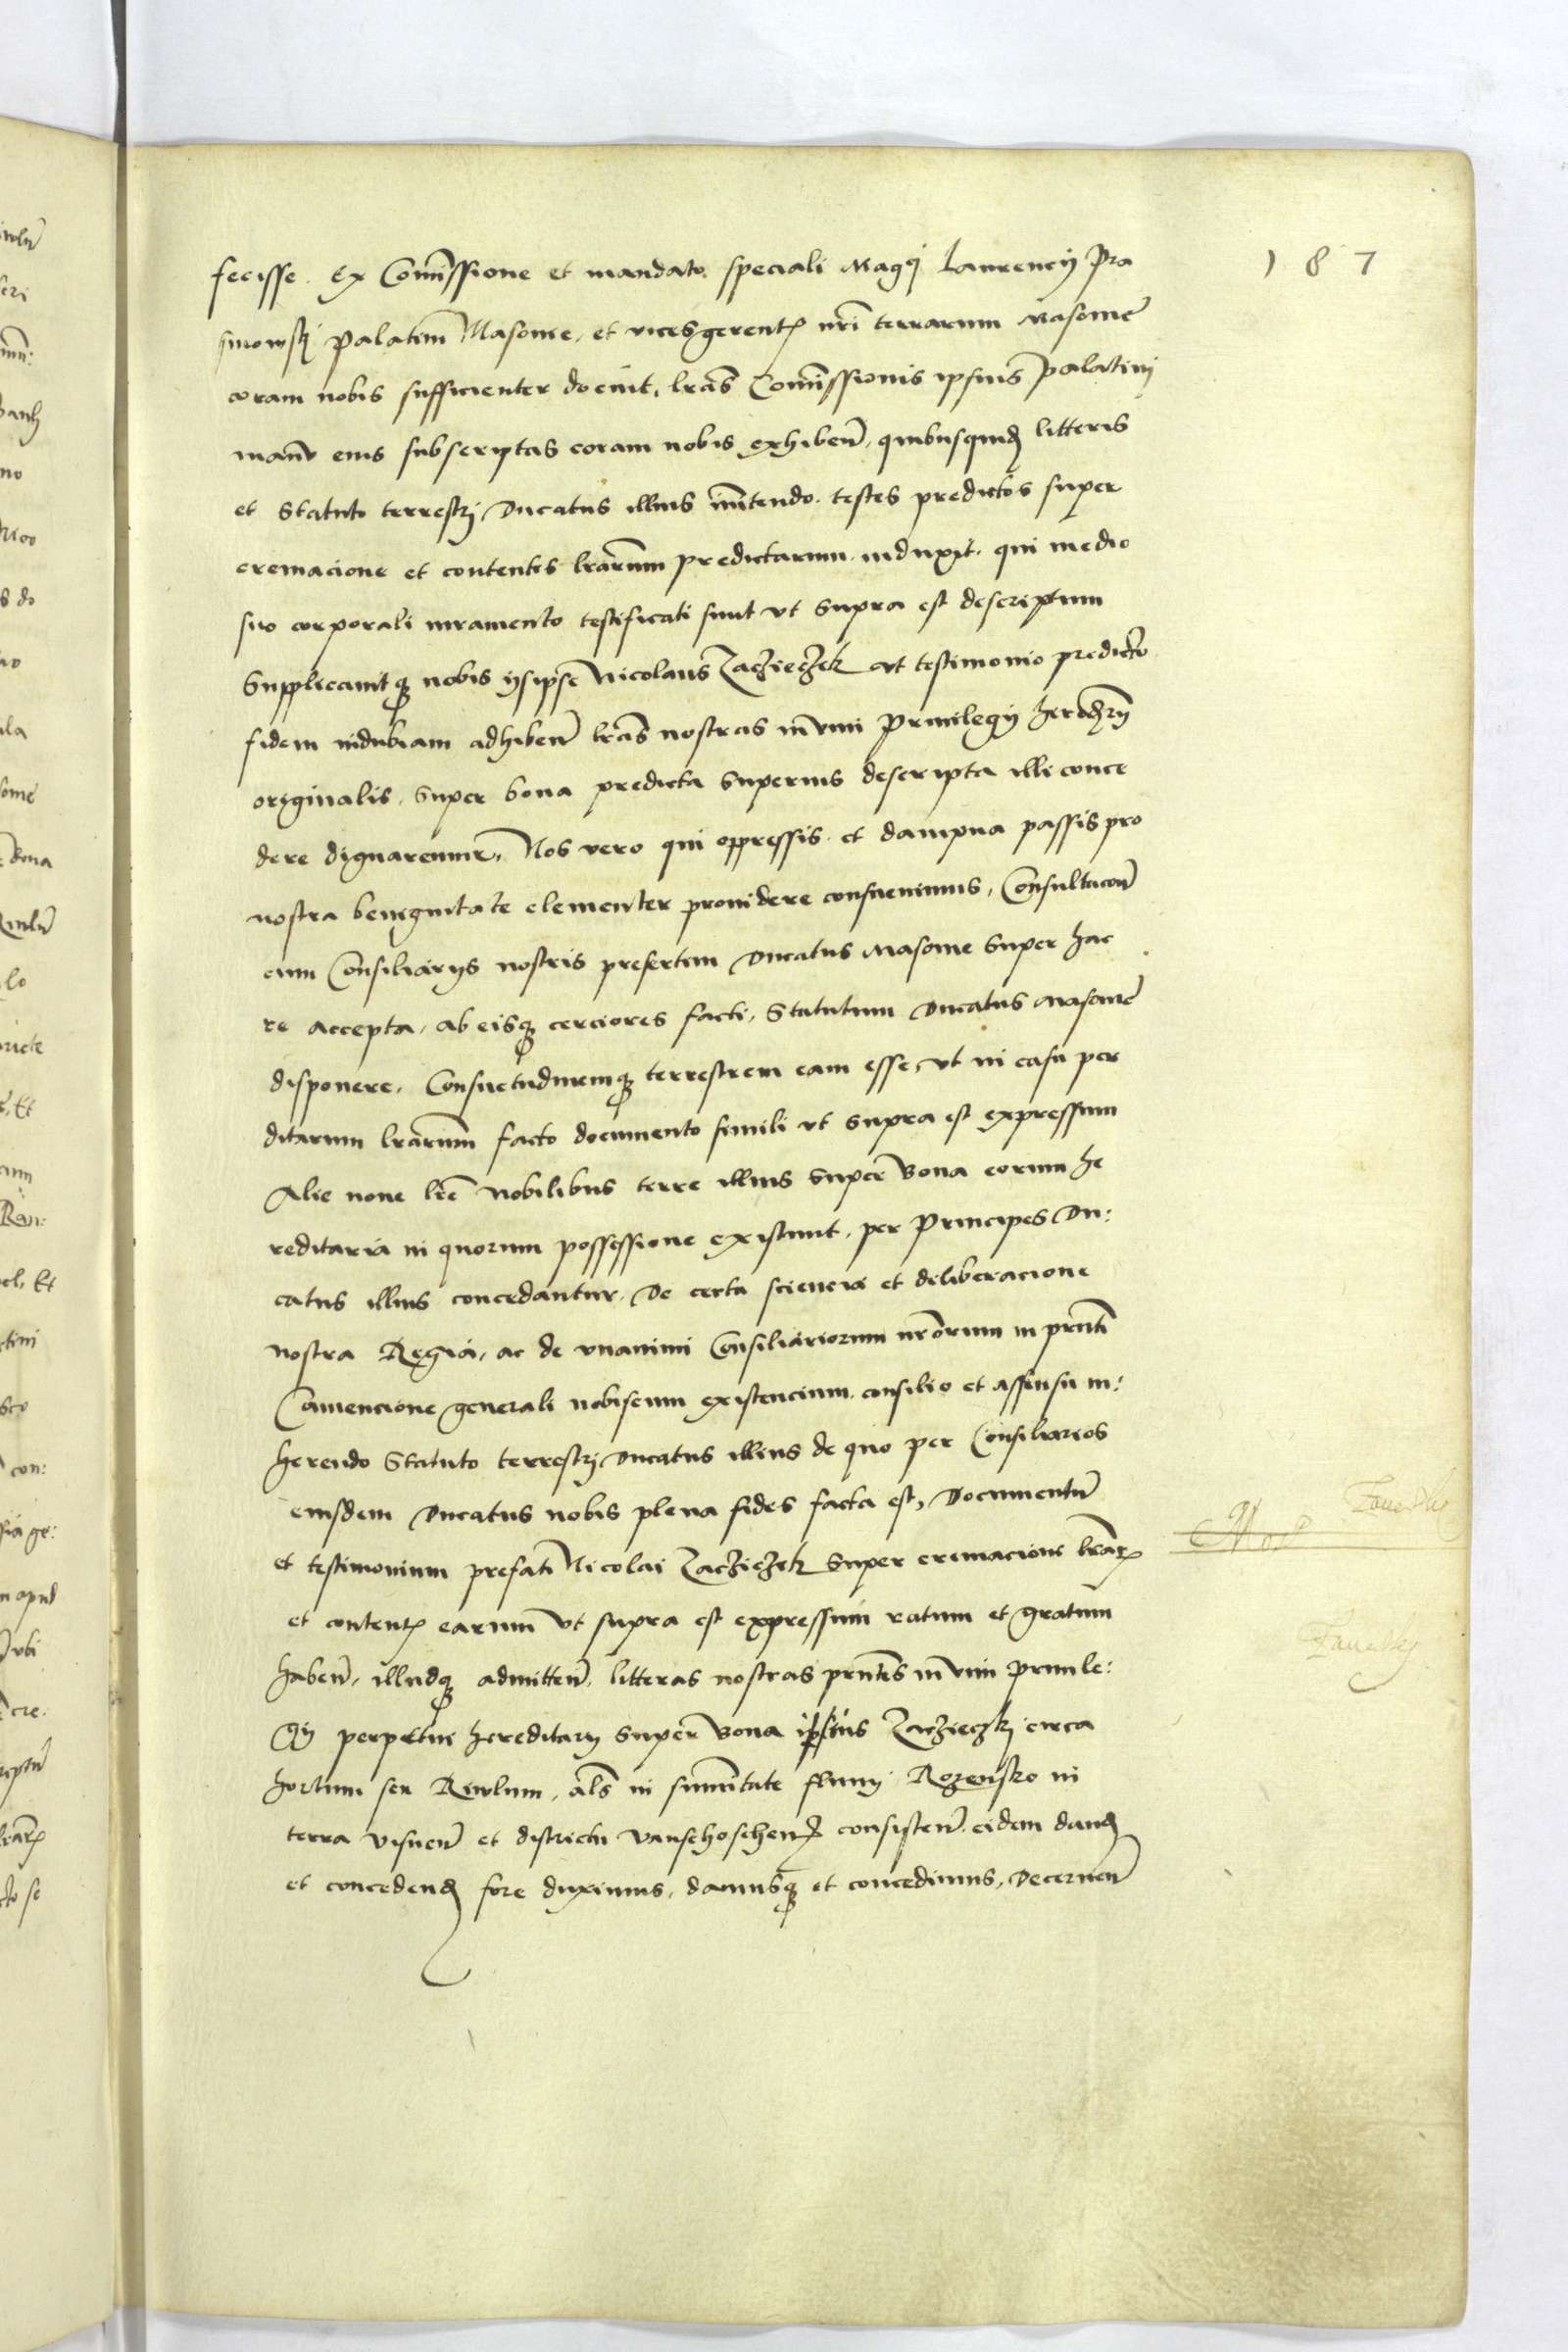 187
fecisse. Ex Com̃issione et mandato speciali Magci Laurencij Pra
smowskj Palatini Masouie. et vicesgerentꝫ nr̃i terrarum Masouie
coram nobis sufficienter docuit. lr̃as Com̃issionis ipsius Palatinj
manu eius subscriptas coram nobis exhibeñ. quibusquidꝫ litteris
et Statuto terrestrj Ducatus illius innitendo. testes predictos super
cremacione et contentis lr̃arum predictarum. induxit. qui medio
suo corporali iuramento testificati sunt vt supra est descriptum
Supplicauitqꝫ nobis ijsipse Nicolaus Zaczieczek vt testimonio predicto
fidem indubiam adhibeñ lr̃as nostras in vim Priuilegij heredrÿ
originalis. super bona predicta superius descripta illi conce
dere dignaremur. Nos vero qui oppressis. et dampna passis pro
nostra benignitate clementer prouidere consueuimus, Consultacoñe
cum Consiliarijs nostris presertim Ducatus Masouie super hac
re accepta, ab eisqꝫ cerciores facti. Statutum Ducatus Masouie
disponere. Consuetudinemqꝫ terrestrem eam esse, vt in casu per
ditarum lr̃arum facto documento simili vt supra est expressum
Alie noue lr̃e Nobilibus terre illius super bona eorum he
reditaria in quorum possessione existunt. per Principes Du:
catus illius concedantur. De certa sciencia et deliberacione
nostra Regia, ac de vnanimi Consiliariorum nr̃orum in pr̃nti
Conuencione generali nobiscum existencium. consilio et assensu in:
herendo Statuto terrestrj Ducatus illius de quo per Consiliarios
eiusdem Ducatus nobis plena fides facta est, Documentũ
et testimonium prefati Nicolai Zacziczek super cremacione lr̃arꝫ
et contentꝫ earum vt supra est expressum ratum et gratum
habeñ, illudqꝫ admitteñ. litteras nostras pr̃ntes in vim priuile:
gij perpetui hereditarij super bona ipsius Zaczieczkj circa
hortum seu Riwlum. al̃s in sum̃itate fluuij Rozenstro in
terra Visneñ et districtu Vanschoscheñ consisteñ. eidem dandꝫ
et concedendꝫ fore duximus. damusqꝫ et concedimus, Decerneñ